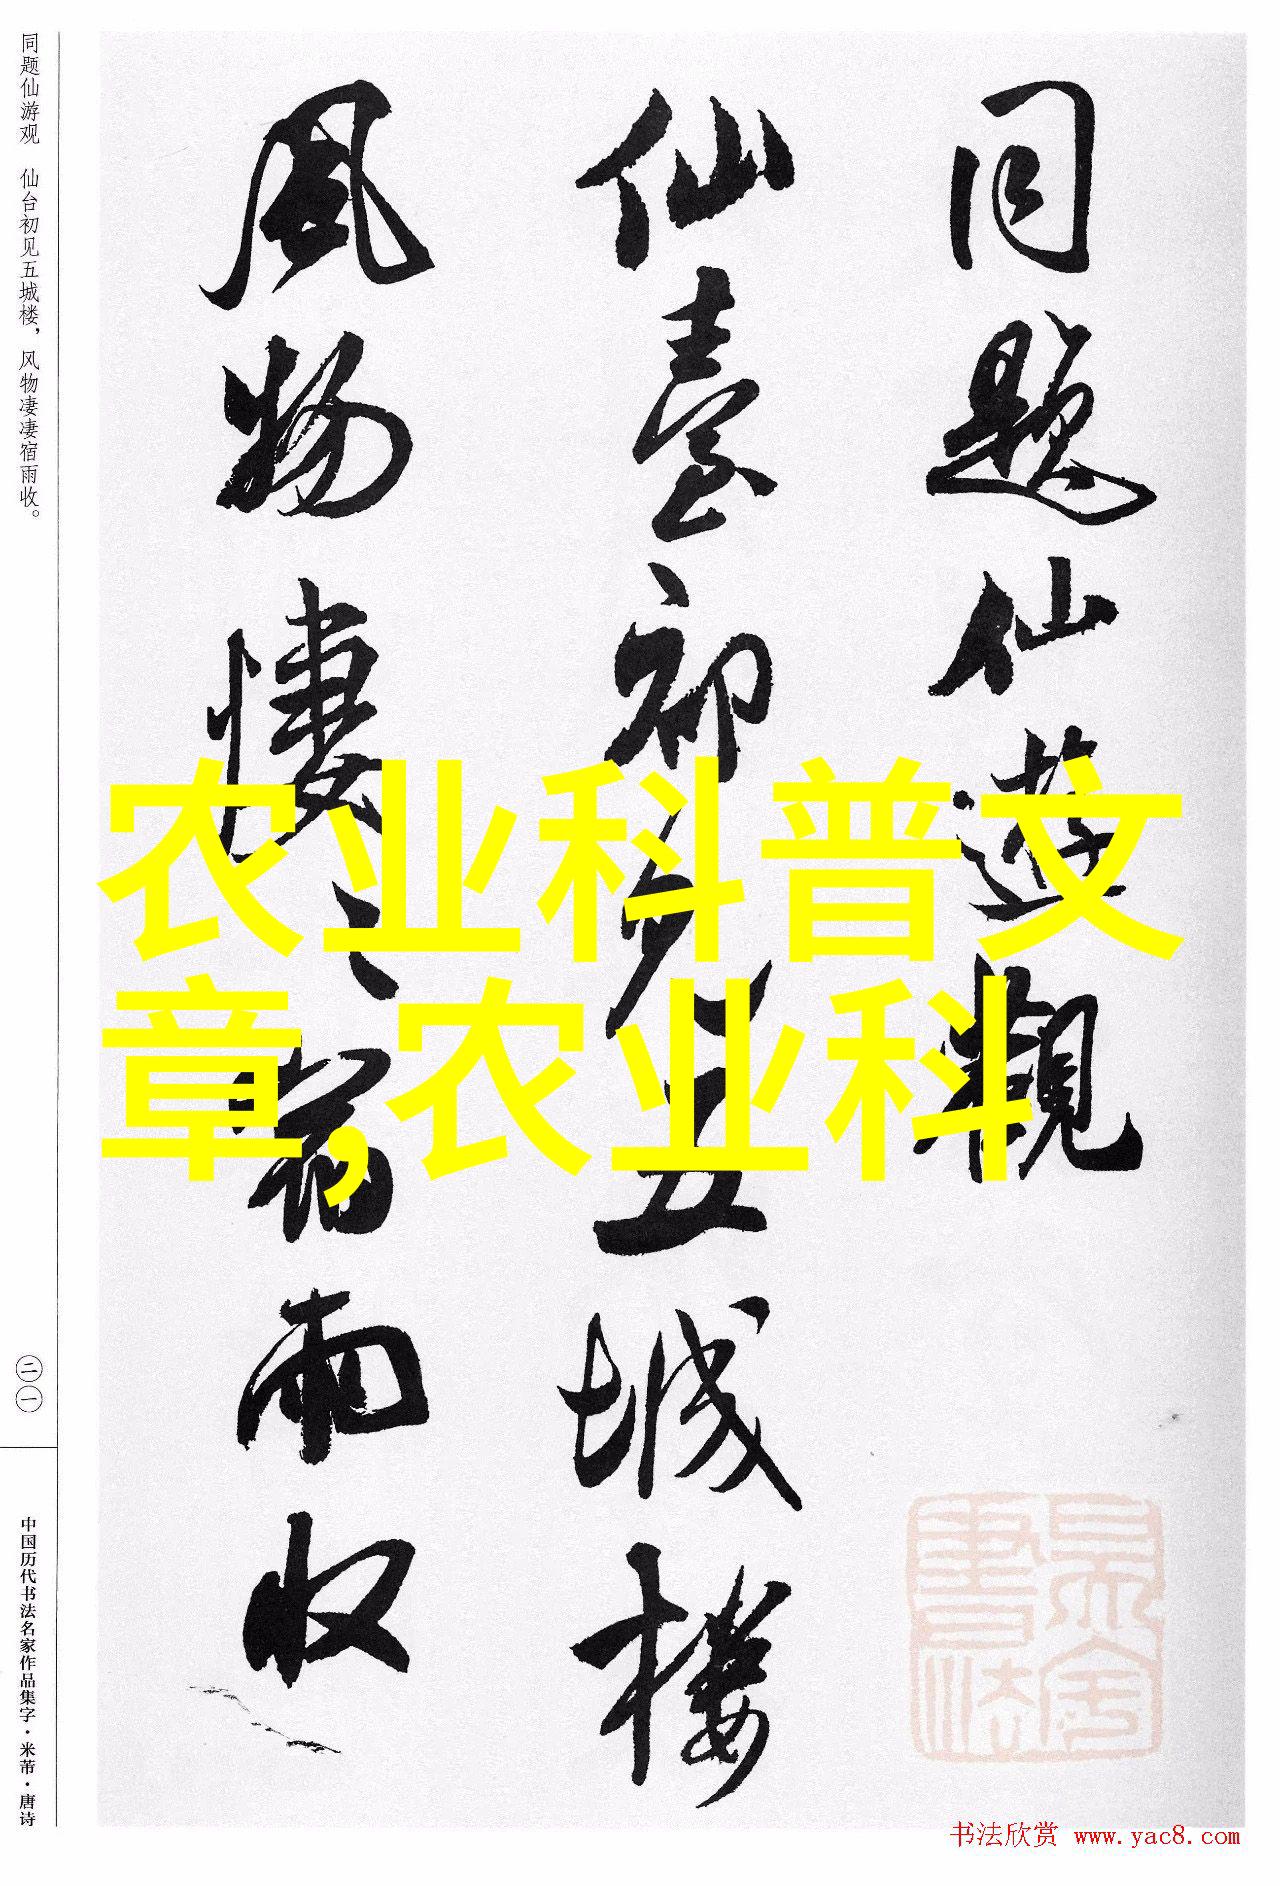 同题仙游观 仙台初见五城楼，风物凄凄宿雨收。
二一
中国历代书法名家作品集字·米芾·唐诗
同題仙遊觀
仙臺初見五城樓
風物悽〻宿雨收
农业科普文
章,农业科
书法欣赏 www.yac8.com